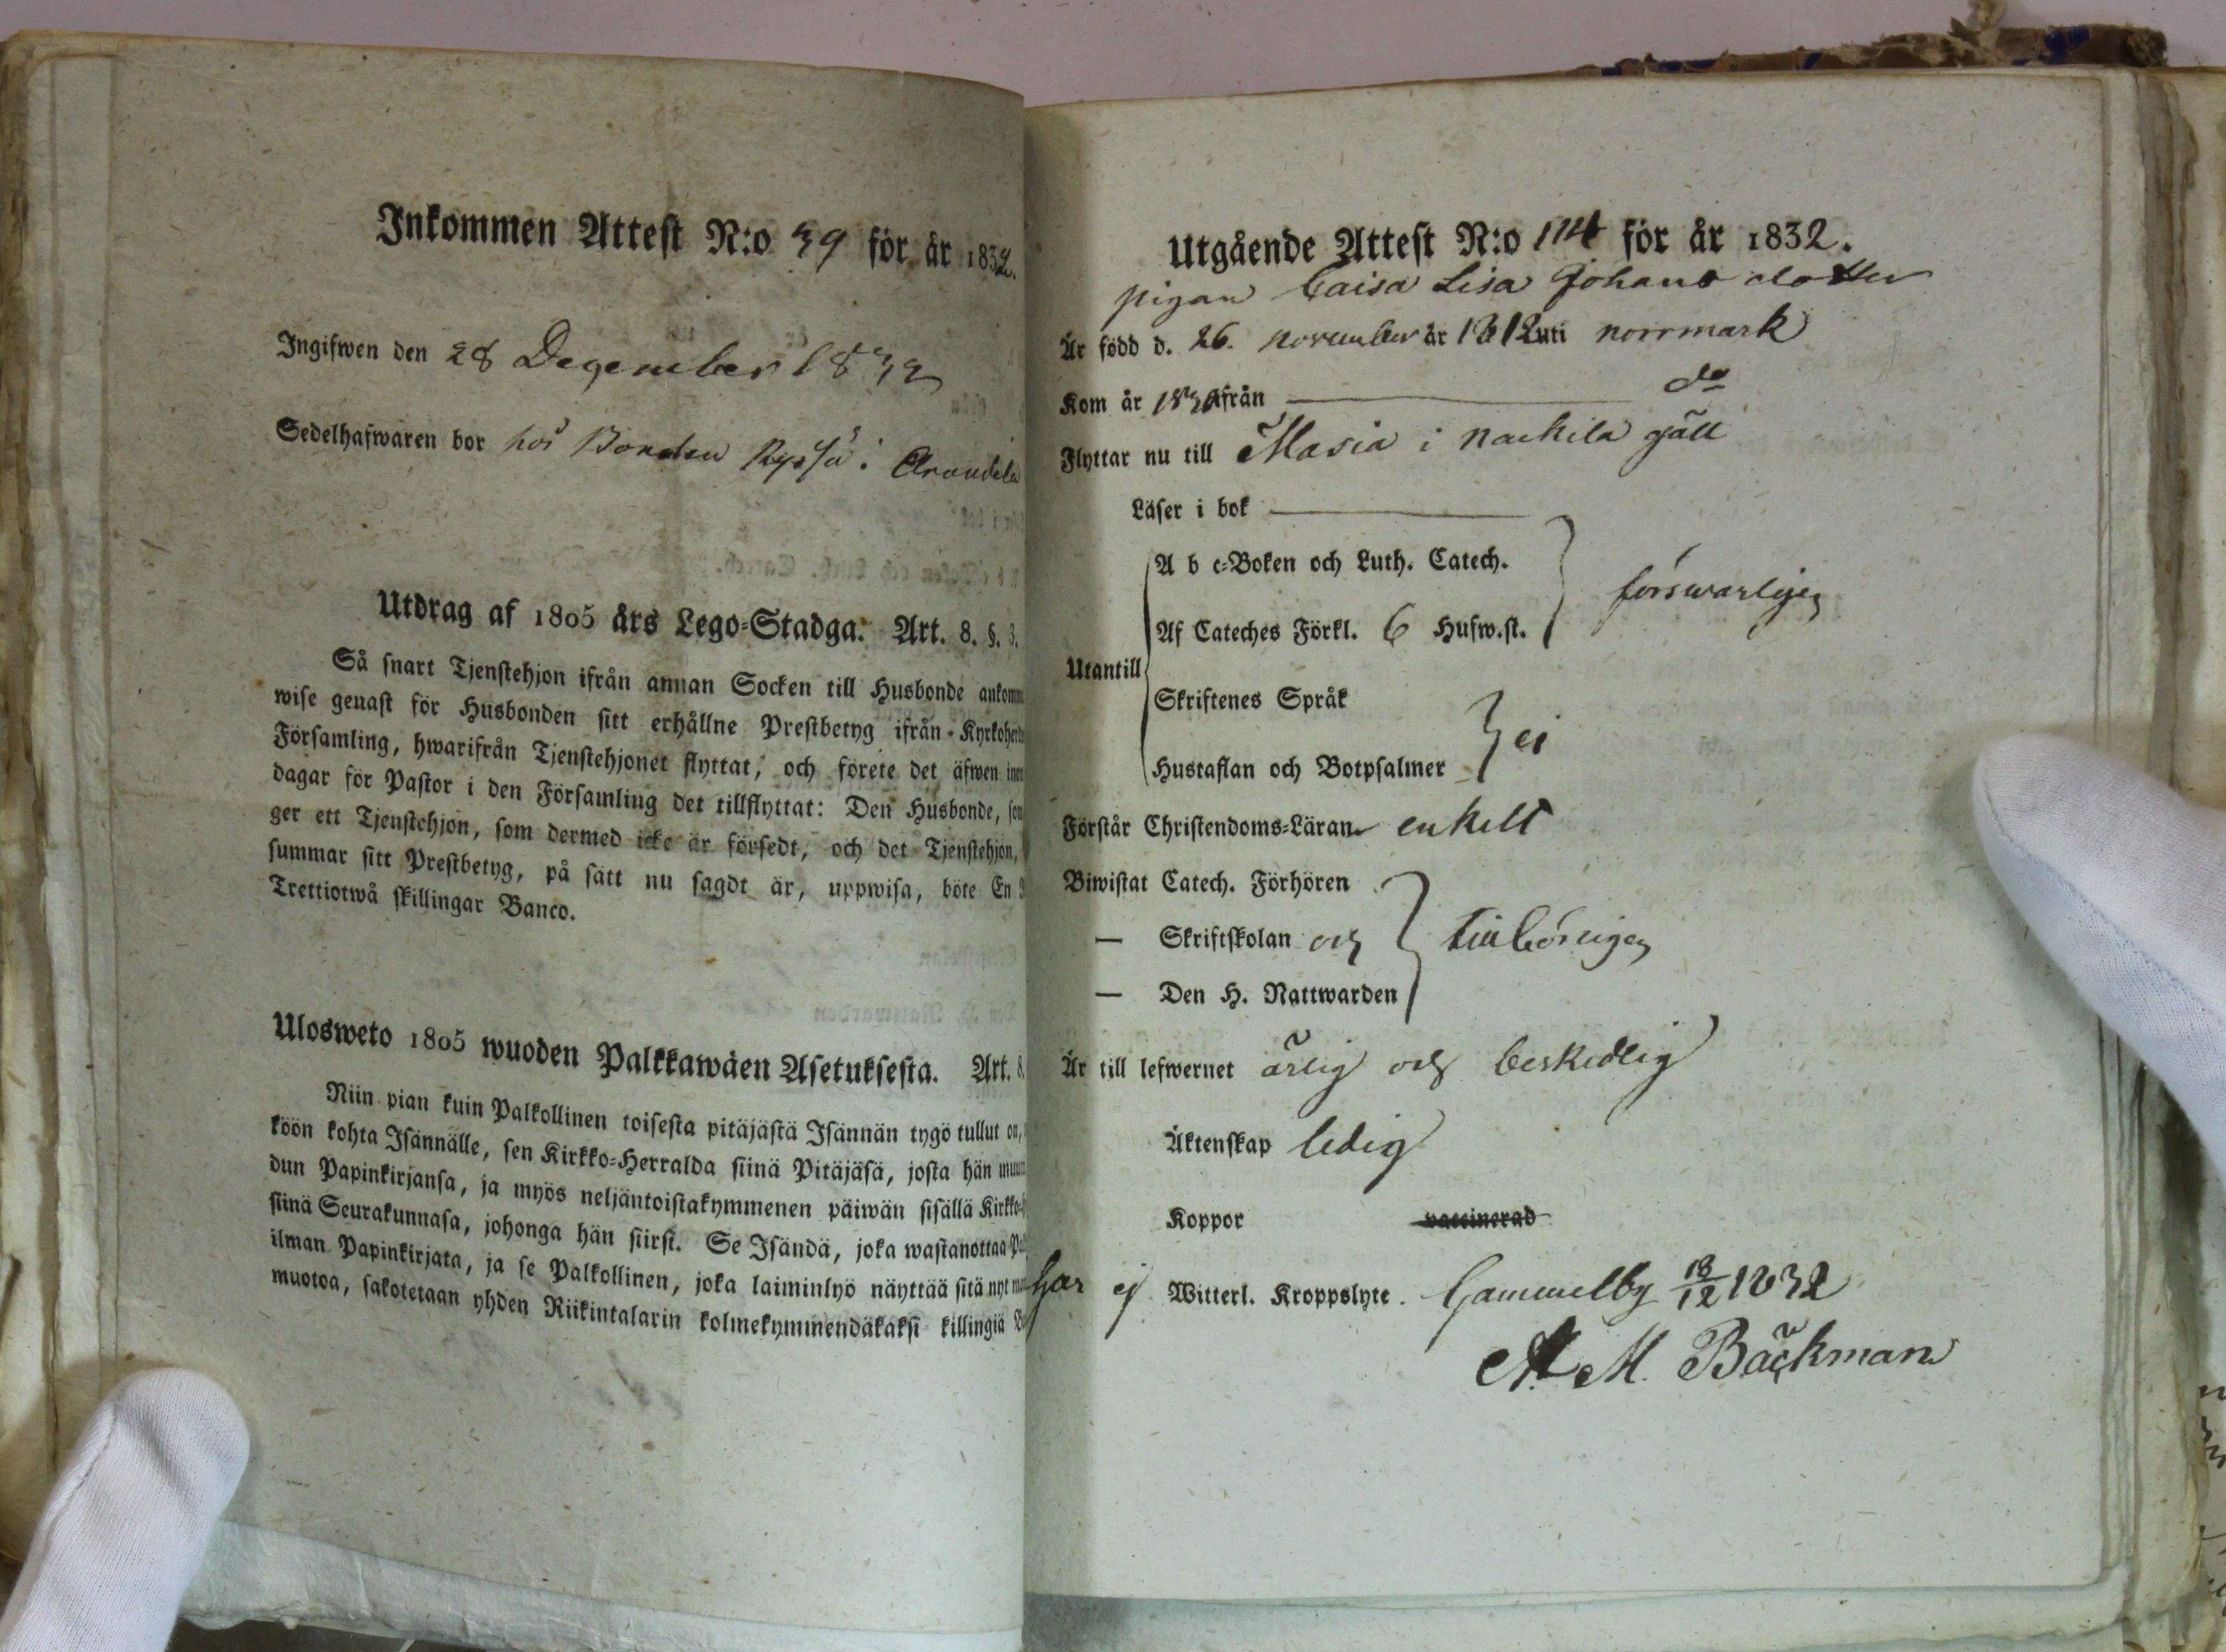 Inkommen Attest N:o 39 för år 1832.
Ingifwen den 28 December 1832
Sedelhafwaren bor hos Bonden i
Utdrag af 1805 års Lego-Stadga. Art. 8. §. 3.
Så snart Tjenstehjon ifrån annan Socken till Husbonde ankomm
wise genast för Husbonden sitt erhållne Prestbetyg ifrån Kyrkoherd
Församling, hwarifrån Tjenstehjonet flyttat, och förete det äfwen inom
dagar för Pastor i den Församling det tillflyttat: Den Husbonde, som
ger ett Tjenstehjon, som dermed icke är försedt, och det Tjenstehjon,
summar sitt Prestbetyg, på sätt nu sagdt är, uppwisa, böte En
Trettiotwå skillingar Banco.
Ulosweto 1805 wuoden Palkkawäen Asetuksesta. Art. 8.
Niin pian kuin Palkollinen toisesta pitäjästä Isännän tygö tullut on,
köön kohta Isännälle, sen Kirkko-Herralda siinä Pitäjäsä, josta hän muut
dun Papinkirjansa, ja myös neljäntoistakymmenen päiwän sisällä Kirkko-
siinä Seurakunnasa, johonga hän siirsi. Se Isändä, joka wastanottaa Pal
ilman Papinkirjata, ja se Palkollinen, joka laiminlyö näyttää sitä nyt
muotoa, sakotetaan yhden Riikintalarin kolmekymmendäkaksi killingiä B
Utgående Attest N:o 114 för år 1832.
pigan Caisa Lisa Johans dotter
Är född d. 26. november år 1812 uti norrmark
Kom år ifrån do
Flyttar nu till Masia i nackila gäll
Läser i bok
A b c-Boken och Luth. Catech.
Af Cateches Förkl. 6 Husw.st.
förswarligen
Utantill
Skriftenes Språk
Hustaflan och Botpsalmer
ei
Förstår Christendoms-Läran enkelt
Biwistat Catech. Förhören
— Skriftskolan och tilbörligen
— Den H. Nattwarden
Är till lefwernet ärlig och beskedlig
Äktenskap ledig
Koppor vaccinerad
har ej Witterl. Kroppslyte. Gammelby 18/12 1832
A. M. Bäckman